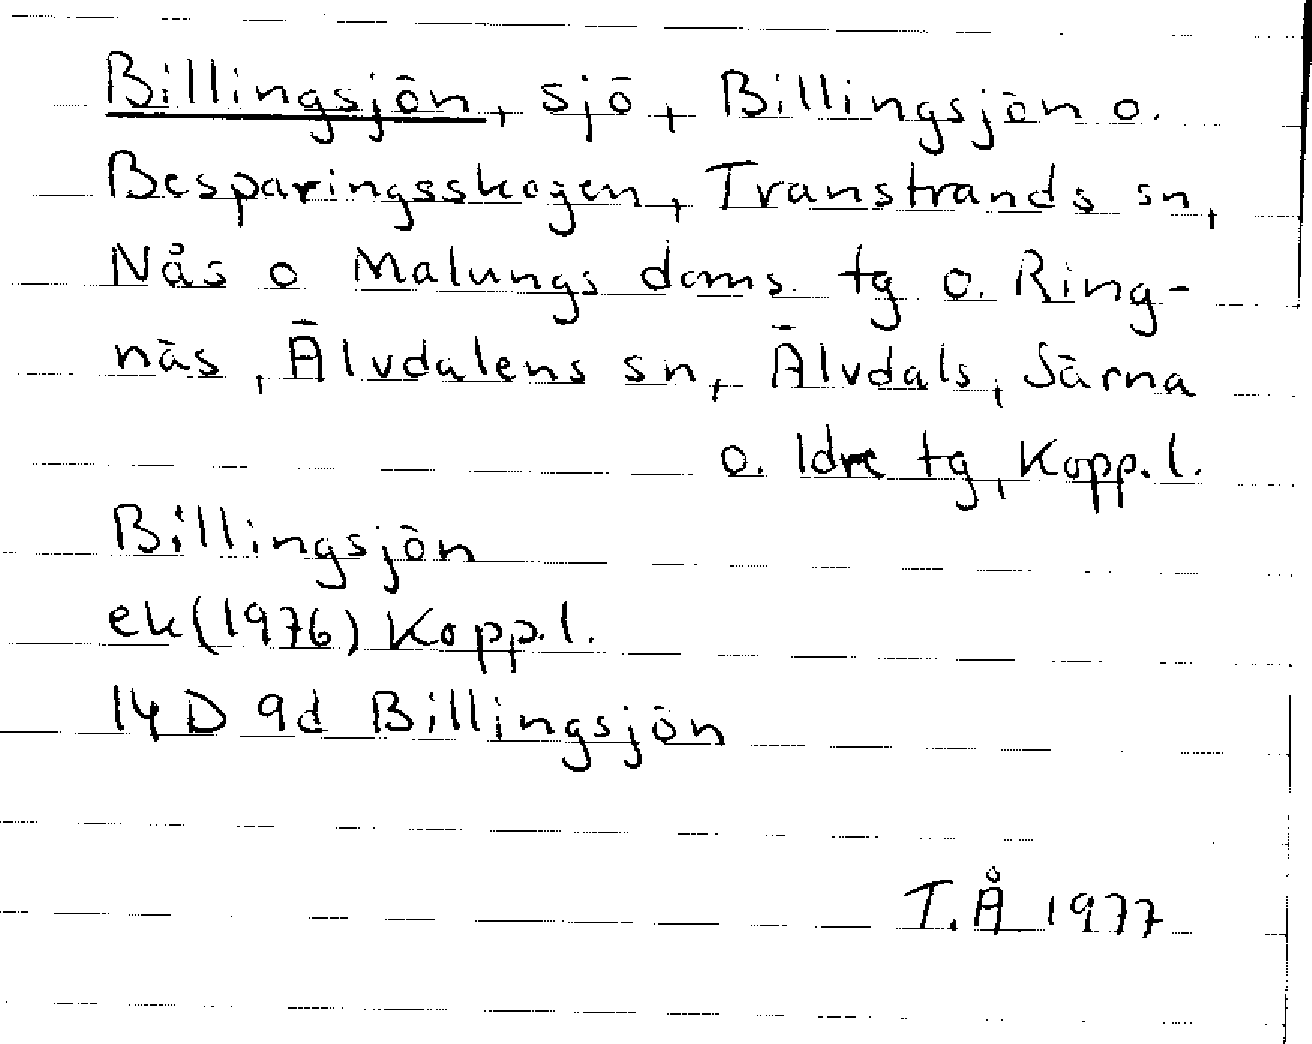 Billingsjön, sjö, Billingsjön o.
Besparingsskogen, Transtrands sn,
Nås o Malungs doms. tg o. Ring-
näs, Älvdalens sn, Älvdals, Särna
o. Idre tg, Kopp.l.
Billingsjön
ek(1976) Kopp.l.
14 D 9d Billingsjön
T.Å 1977